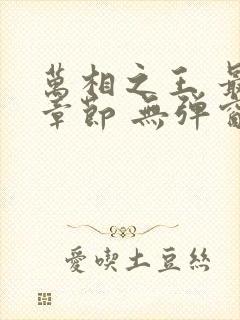 萬相之王
章節 無彈
愛喫土豆絲